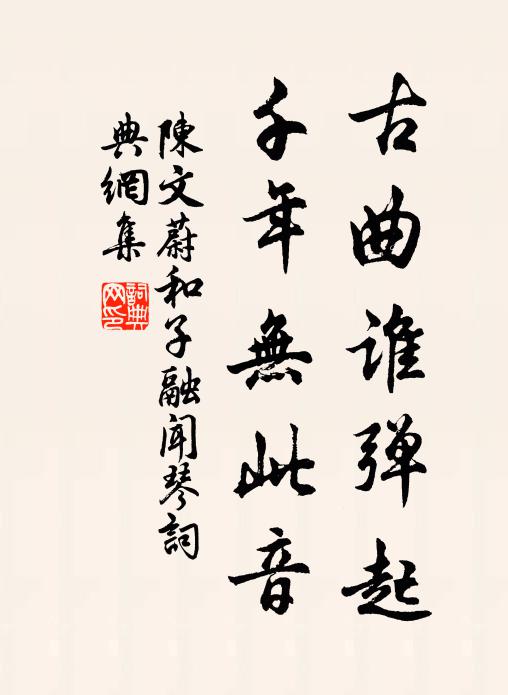 古曲谁弹起
千年無此音
陳文蔚和子融聞琴詞
典網集
詞典
网印